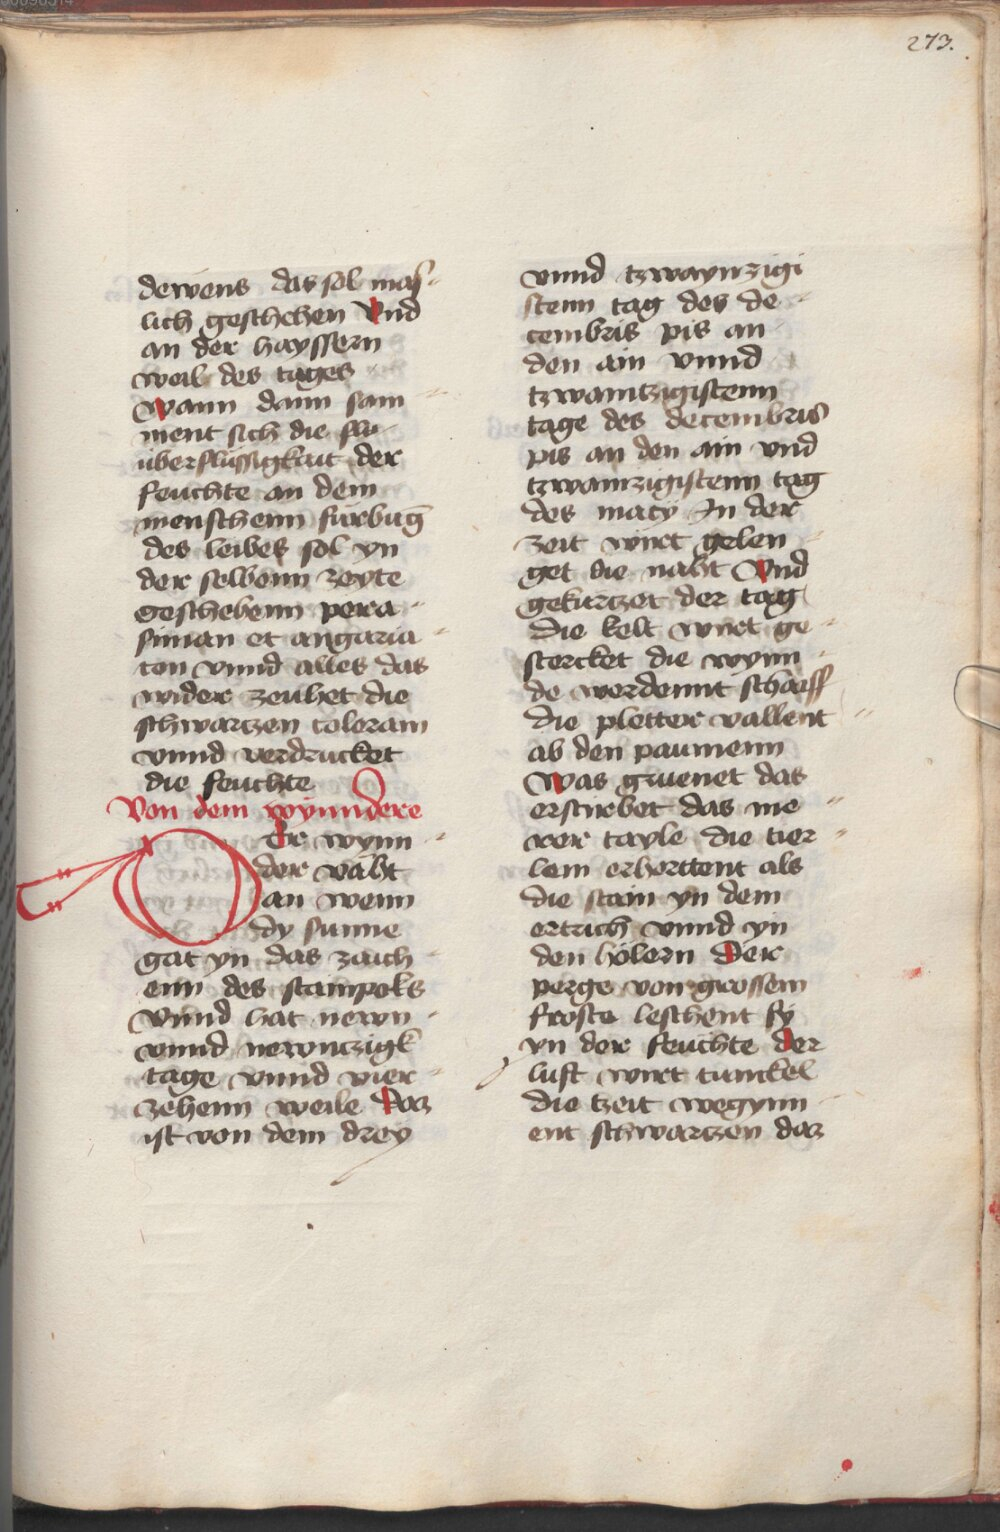 273.
dewens das sol mas-
lich geschehen Vnd
an der hayssern
weil des tages
wann dann sam
ment sich die flu-
überflüssigkait der
feuchte an dem
menschenn fürbug
des leibes sol yn
der selbenn zeyte
geschehenn pera-
siman et angaria-
ton vnnd alles das
wider zeuhet die
schwartzen coloram
vnnd verdrucket
die feuchte
Von dem wynndere
Der wynn-
der väht
an wenn
dy sunne
gat yn das zaich-
enn des stainpoks
vnnd hat newn-
vnnd newntzigk
tage vnnd vier-
zehenn weile Daz
ist von dem drey
vnnd tzwaynzigi
stenn tag des de-
cembris pis an
den ain vnnd
tzwaintzigistenn
tage des decembris
pis an den ain vnd
tzwainzigistenn tag
des marcy In der
zeit wirt gelen-
get die naht Vnd
gekurtzet der tag
die kelt wirt ge-
stercket die wynn-
de werdennt schärff
die pletter vallent
ab den paumenn
Was gruenet das
erstirbet das me-
rer tayle die tier-
lein erhorttent als
die stain yn dem
ertrich vnnd yn
den hölern Der
perge von grossem
froste leschent sy
yn der feuchte der
luft wirt tunckel
die tzeit wegynn-
ent schwartzen daz